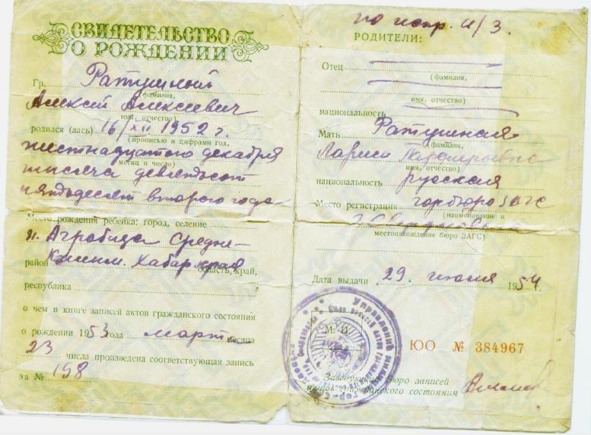 СВИДЕТЕЛЬСТВО
О РОЖДЕНИИ
Гр. Ратушный
(фамилия,
Алексей Алексеевич
имя, отчество)
родился (лась) 16/XII 1952 г.
(прописью и цифрами год,
шестнадцатого декабря
месяц и число)
тысяча девятьсот
пятьдесят второго года
Место рождения ребенка: город, селение
п. Агробаза Средне-
район Хабар. край область, край,
республика
о чем в книге записей актов гражданского состояния
о рождении 1953 года март месяца
23 числа произведена соответствующая запись
за № 198
по испр. и/з.
РОДИТЕЛИ:
Отец
(фамилия,
имя, отчество)
национальность
Мать Ратушная
(фамилия,
Лариса
имя, отчество)
национальность русская
Место регистрации горбюро ЗАГС
(наименование и
местонахождение бюро ЗАГС)
Дата выдачи 29 июля 1954 г.
М. П.
ЮО № 384967
бюро записей
гражданского состояния